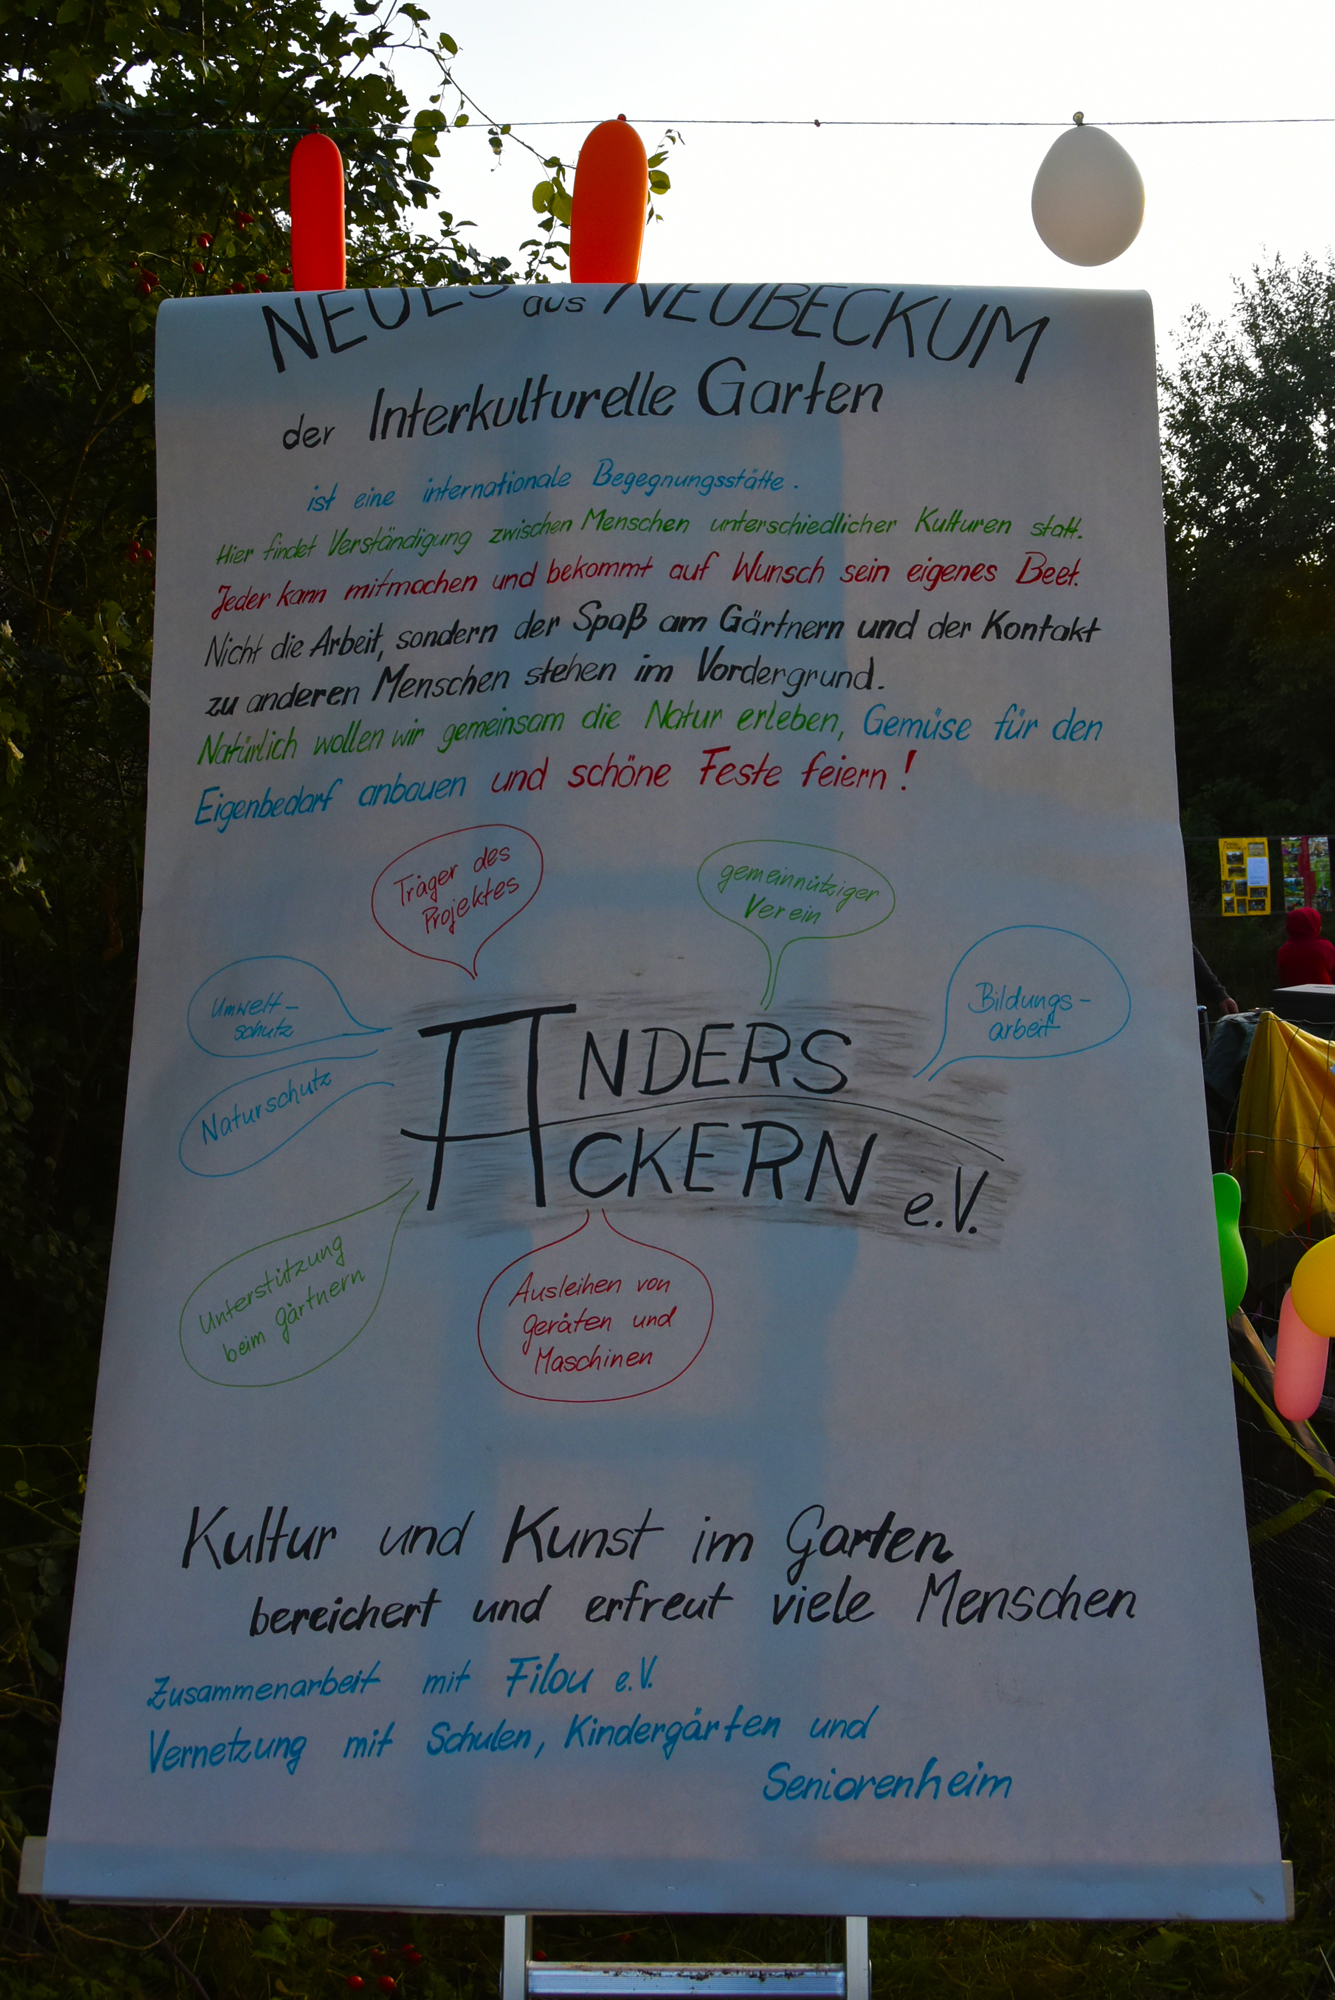 NEUES aus NEUBECKUM
der Interkulturelle Garten
ist eine internationale Begegnungsstätte.
Hier findet Verständigung zwischen Menschen unterschiedlicher Kulturen statt.
Jeder kann mitmachen und bekommt auf Wunsch sein eigenes Beet.
Nicht die Arbeit, sondern der Spaß am Gärtnern und der Kontakt
zu anderen Menschen stehen im Vordergrund.
Natürlich wollen wir gemeinsam die Natur erleben, Gemüse für den
Eigenbedarf anbauen und schöne Feste feiern!
Träger des
Projektes
gemeinnütziger
Verein
Umwelt-
schutz
Bildungs-
arbeit
Naturschutz
ANDERS
ACKERN e.V.
Unterstützung
beim gärtnern
Ausleihen von
geräten und
Maschinen
Kultur und Kunst im Garten
bereichert und erfreut viele Menschen
Zusammenarbeit mit Filou e.V.
Vernetzung mit Schulen, Kindergärten und
Seniorenheim